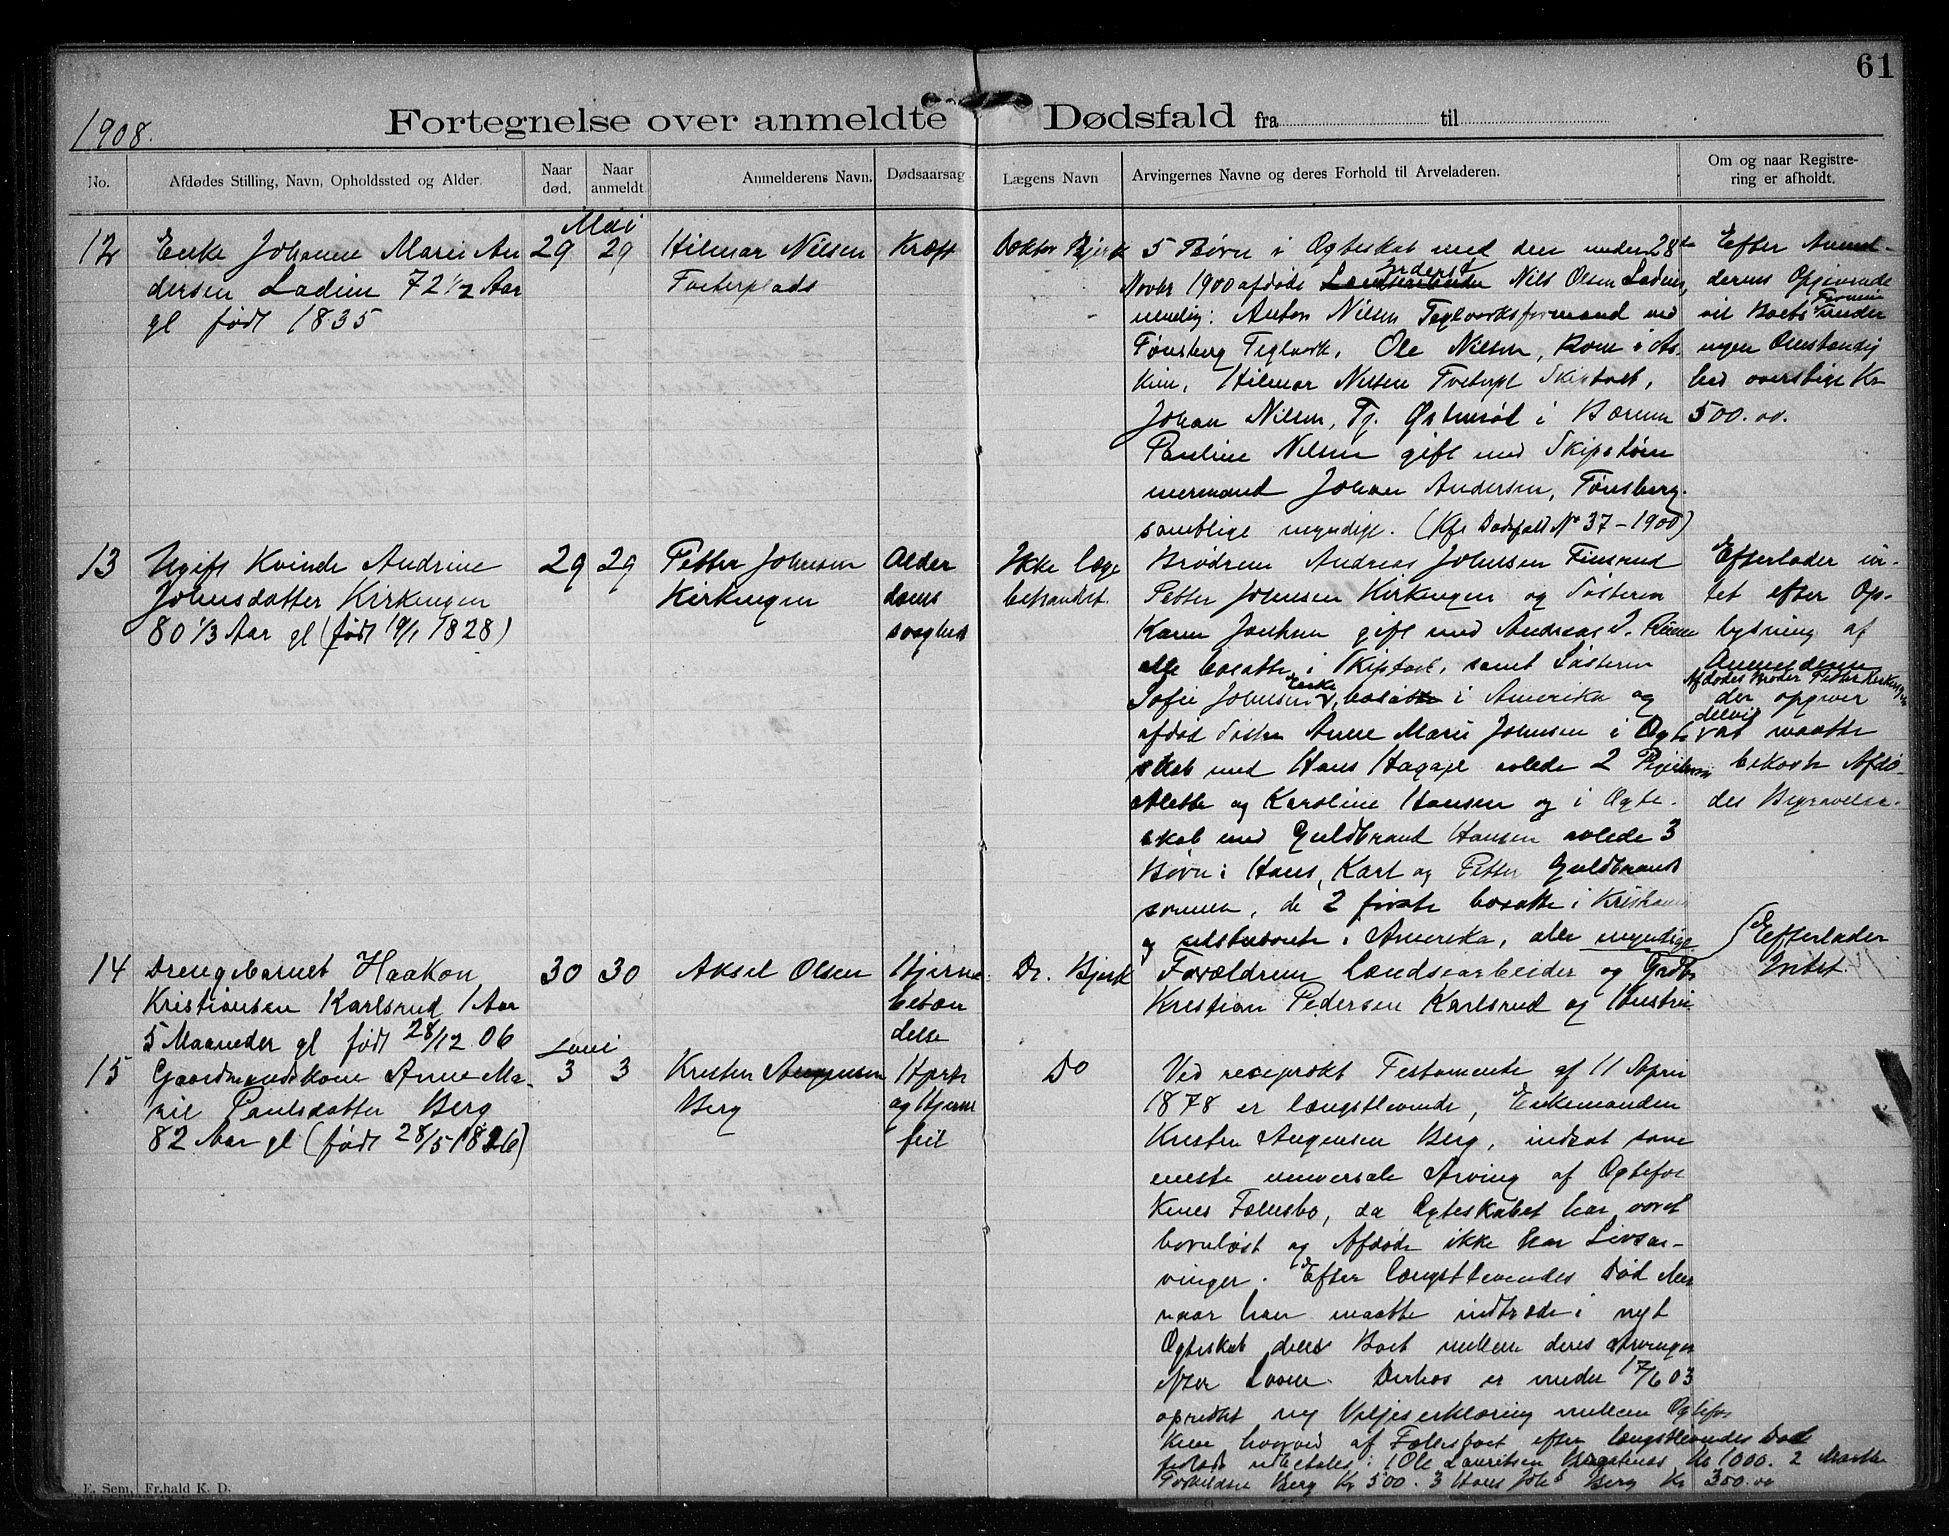 61
1908.
Fortegnelse over anmeldte Dødsfald fra til
No.
Afdødes Stilling, Navn, Opholdssted og Alder.
Naar død.
Naar anmeldt
Anmelderens Navn.
Dødsaarsag
Lægens Navn
Arvingernes Navne og deres Forhold til Arveladeren.
Om og naar Registrering er afholdt.
Mai
12
Enke Johanne Marie An
dersen Ladim 72 1/2 Aar
gl født 1835
29
29
Hilmar Nilsen
Tveterplads
Kræft
Doktor Bjerk
5 Børn i Ægteskab med den under 28de
Novbr 1900 afdøde Inderst Nils Olsen Ladim,
nemlig: Anton Nilsen Teglverksformand ved
Tønsberg Teglverk, Ole Nilsen, Kom i As
kim, Hilmar Nilsen Tveterpl Skiptvet,
Johan Nilsen, Tj. Østernsöt i Bærum
Pauline Nilsen gift med Skipstøm
mermand Johan Andersen, Tønsberg.
samtlige myndige. (Kfr Dødsfald No 37-1900)
Efter Anmel-
derens Opgivende
vil Boets Formue under
ingen Omstændig
hed overstige Kr
500.00.
13
Ugift Kvinde Andrine
Johnsdatter Kirkengen
80 1/3 Aar gl (født 19/1 1828)
29
29
Petter Johnsen
Kirkengen
Alder
doms
svaghed
Ikke læge
behandlet.
Brødrene Andreas Johnsen Finsrud
Petter Johnsen Kirkengen og Søsteren
Karen Johnsen gift med Andreas J.
alle bosatte i Skiptvet, samt Søsteren
Sofie Johnsen Enke, bosatte i Amerika og
afdød Søster Anne Marie Johnsen i Ægte
skab med Hans Hagaje avlede 2 Pigebørn
Mette og Karoline Hansen og i Ægte-
skab med Guldbrand Hansen avlede 3
Børn: Hans, Karl og Petter Guldbrand
sønner, de 2 første bosatte i Kristiania
og sidstnævnte i Amerika, alle myndige
Efterlader in-
tet efter Op-
lysning af
Anmelderen
Afdødes Broder Petter Kirkengen
der opgiver
delvis
at maatte
bekoste Afdø-
des Begravelse.
14
Drengebarnet Haakon
Kristiansen Karlsrud 1 Aar
5 Maaneder gl født 28/12 06
30
30
Aksel Olsen
Hjerne
betæn
delse
Dr. Bjerk
Forældrene Landsearbeider og Gaardbr
Kristian Pedersen Karlsrud og Hustru
Efterlader
Intet.
Juni
15
Gaardmandskone Anne Ma-
rie Paulsdatter Berg
82 Aar gl (født 28/5 1826)
3
3
Kristen Augensen
Berg
Hjerte
og Hjerne
feil
Do
Ved reciprokt Testamente af 11 April
1878 er længstlevende, Enkemanden
Kristen Augensen Berg, indsat som
eneste universale Arving af Ægtefol
kenes Fællesbo, da Ægteskabet har været
barnløst og Afdøde ikke har Livsar-
vinger. Efter længstlevendes Død eller
naar han maatte indtræde i nyt
Ægteskab deles Boet mellem deres Arvinger
efter Loven. Derhos er under 17/6 03
oprettet ny Viljeserklæring mellem Ægtefol
kene hvorved af Fællesboet efter længstlevendes Død
udbetales: 1 Ole Lauritsen Kr 1000. 2
Berg Kr 500. 3 Hans Joh Berg Kr 300.00
E. Sem, Fr.hald K. D.